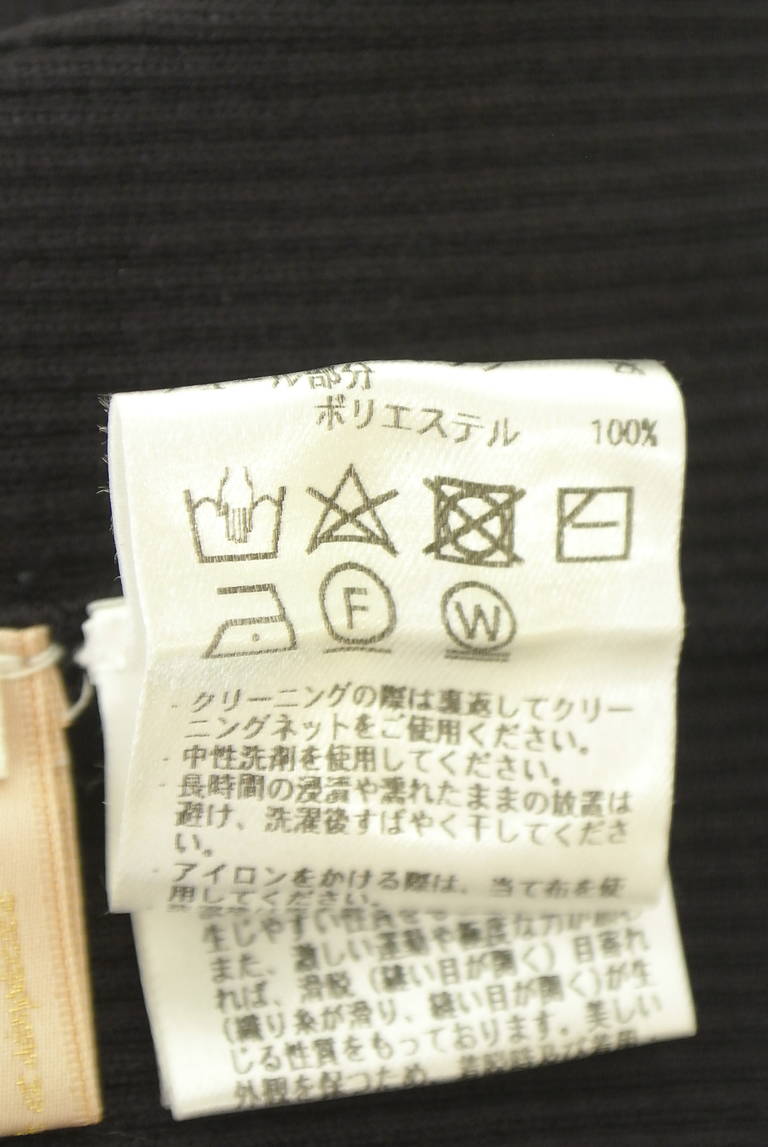 ール部分
ポリエステル 100%
F
W
・クリーニングの際は裏返してクリー
ニングネットをご使用ください。
・中性洗剤を使用してください。
・長時間の浸漬や濡れたままの放置は
避け、洗濯後すばやく干してくださ
い。
・アイロンをかける際は、当て布を使
用してください。
生じやすい性質を
また、激しい運動や極度な力が
れば、滑脱（縫い目が開く）目寄れ
(織り糸が滑り、縫い目が開く)が生
じる性質をもっております。美しい
外観を保つため、着脱時及び着用